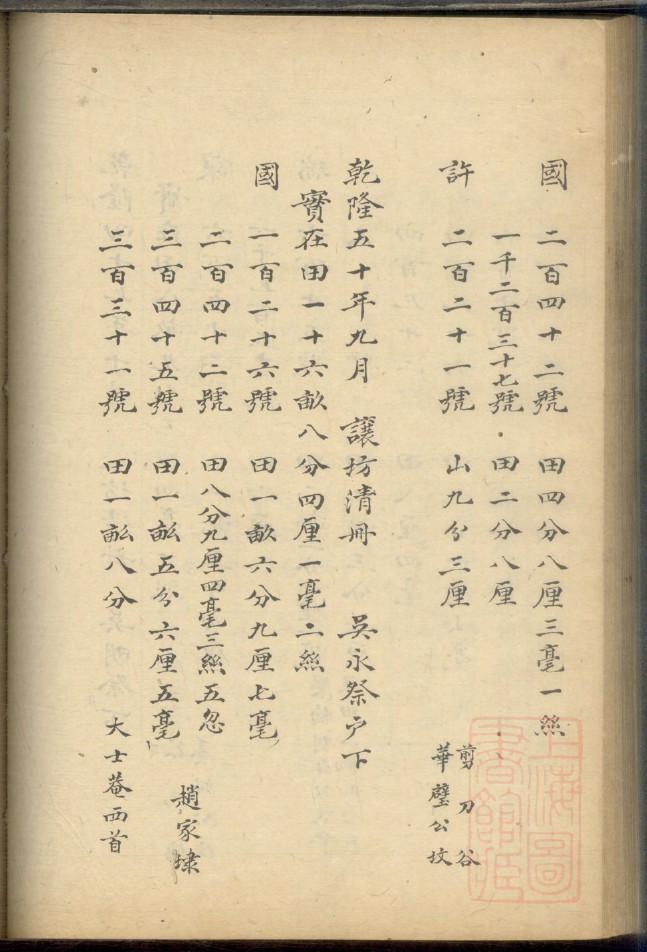 國 二百四十二號 田四分八厘三毫一絲
一千二百三十七號 田二分八厘
許 二百二十一號 山九分三厘 剪刀谷
華璧公坟
乾隆五十年九月 讓坊清冊 吳永祭户下
實在田一十六畝八分四厘一毫二絲
國 一百二十六號 田一畝六分九厘七毫
二百四十二號 田八分九厘四毫三絲五忽
三百四十五號 田一畝五分六厘五毫 趙家埭
三百三十一號 田一畝八分 大士菴西首
上海圖書館藏